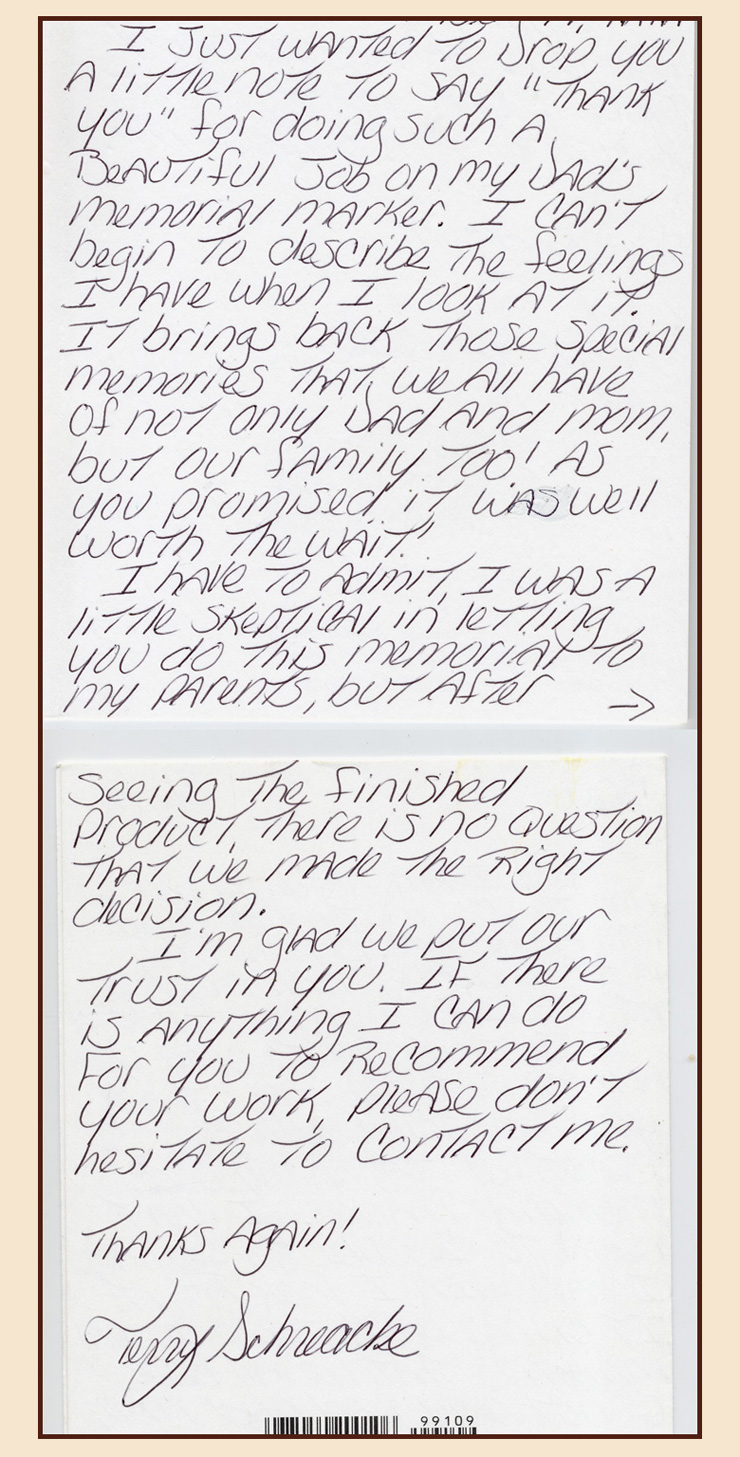 I Just wanted to drop you
A little note to say "Thank
you" for doing such A
Beautiful Job on my Dad's
memorial marker. I can't
begin to describe the feelings
I have when I look at it.
It brings back those special
memories that we all have
of not only Dad and mom,
but our family too! As
you promised, it was well
worth the wait!
I have to admit, I was a
little skeptical in letting
you do this memorial to
my parents, but after
→
Seeing the finished
Product, there is no question
that we made the Right
decision.
I'm glad we put our
trust in you. If there
is anything I can do
For you to Recommend
your work, please don't
hesitate to contact me.
Thanks Again!
Terry Schreacke
99109